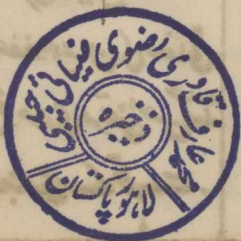 محمد عارف قادری رضوی ضیائی جیبی
ذخیرہ
لاہور پاکستان